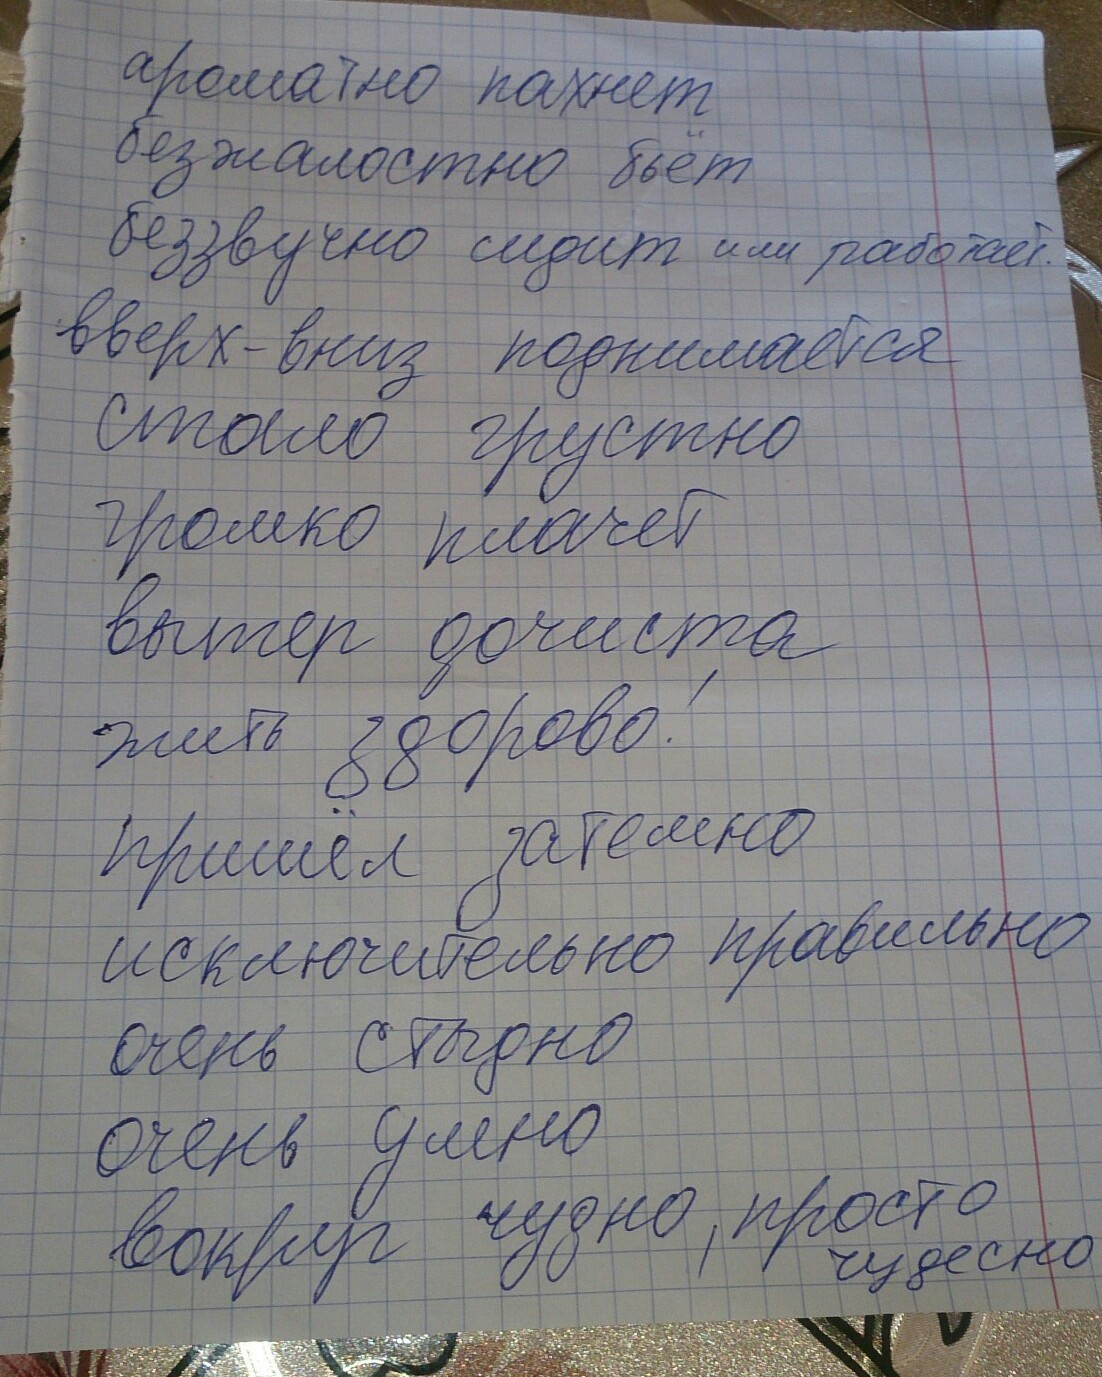 ароматно пахнет
безжалостно бьёт
беззвучно сидит или работает.
вверх-вниз поднимается
стало грустно
громко плачет
вытер дочиста
жить здорово!
пришёл затемно
исключительно правильно
очень стыдно
очень умно
вокруг чудно, просто
чудесно